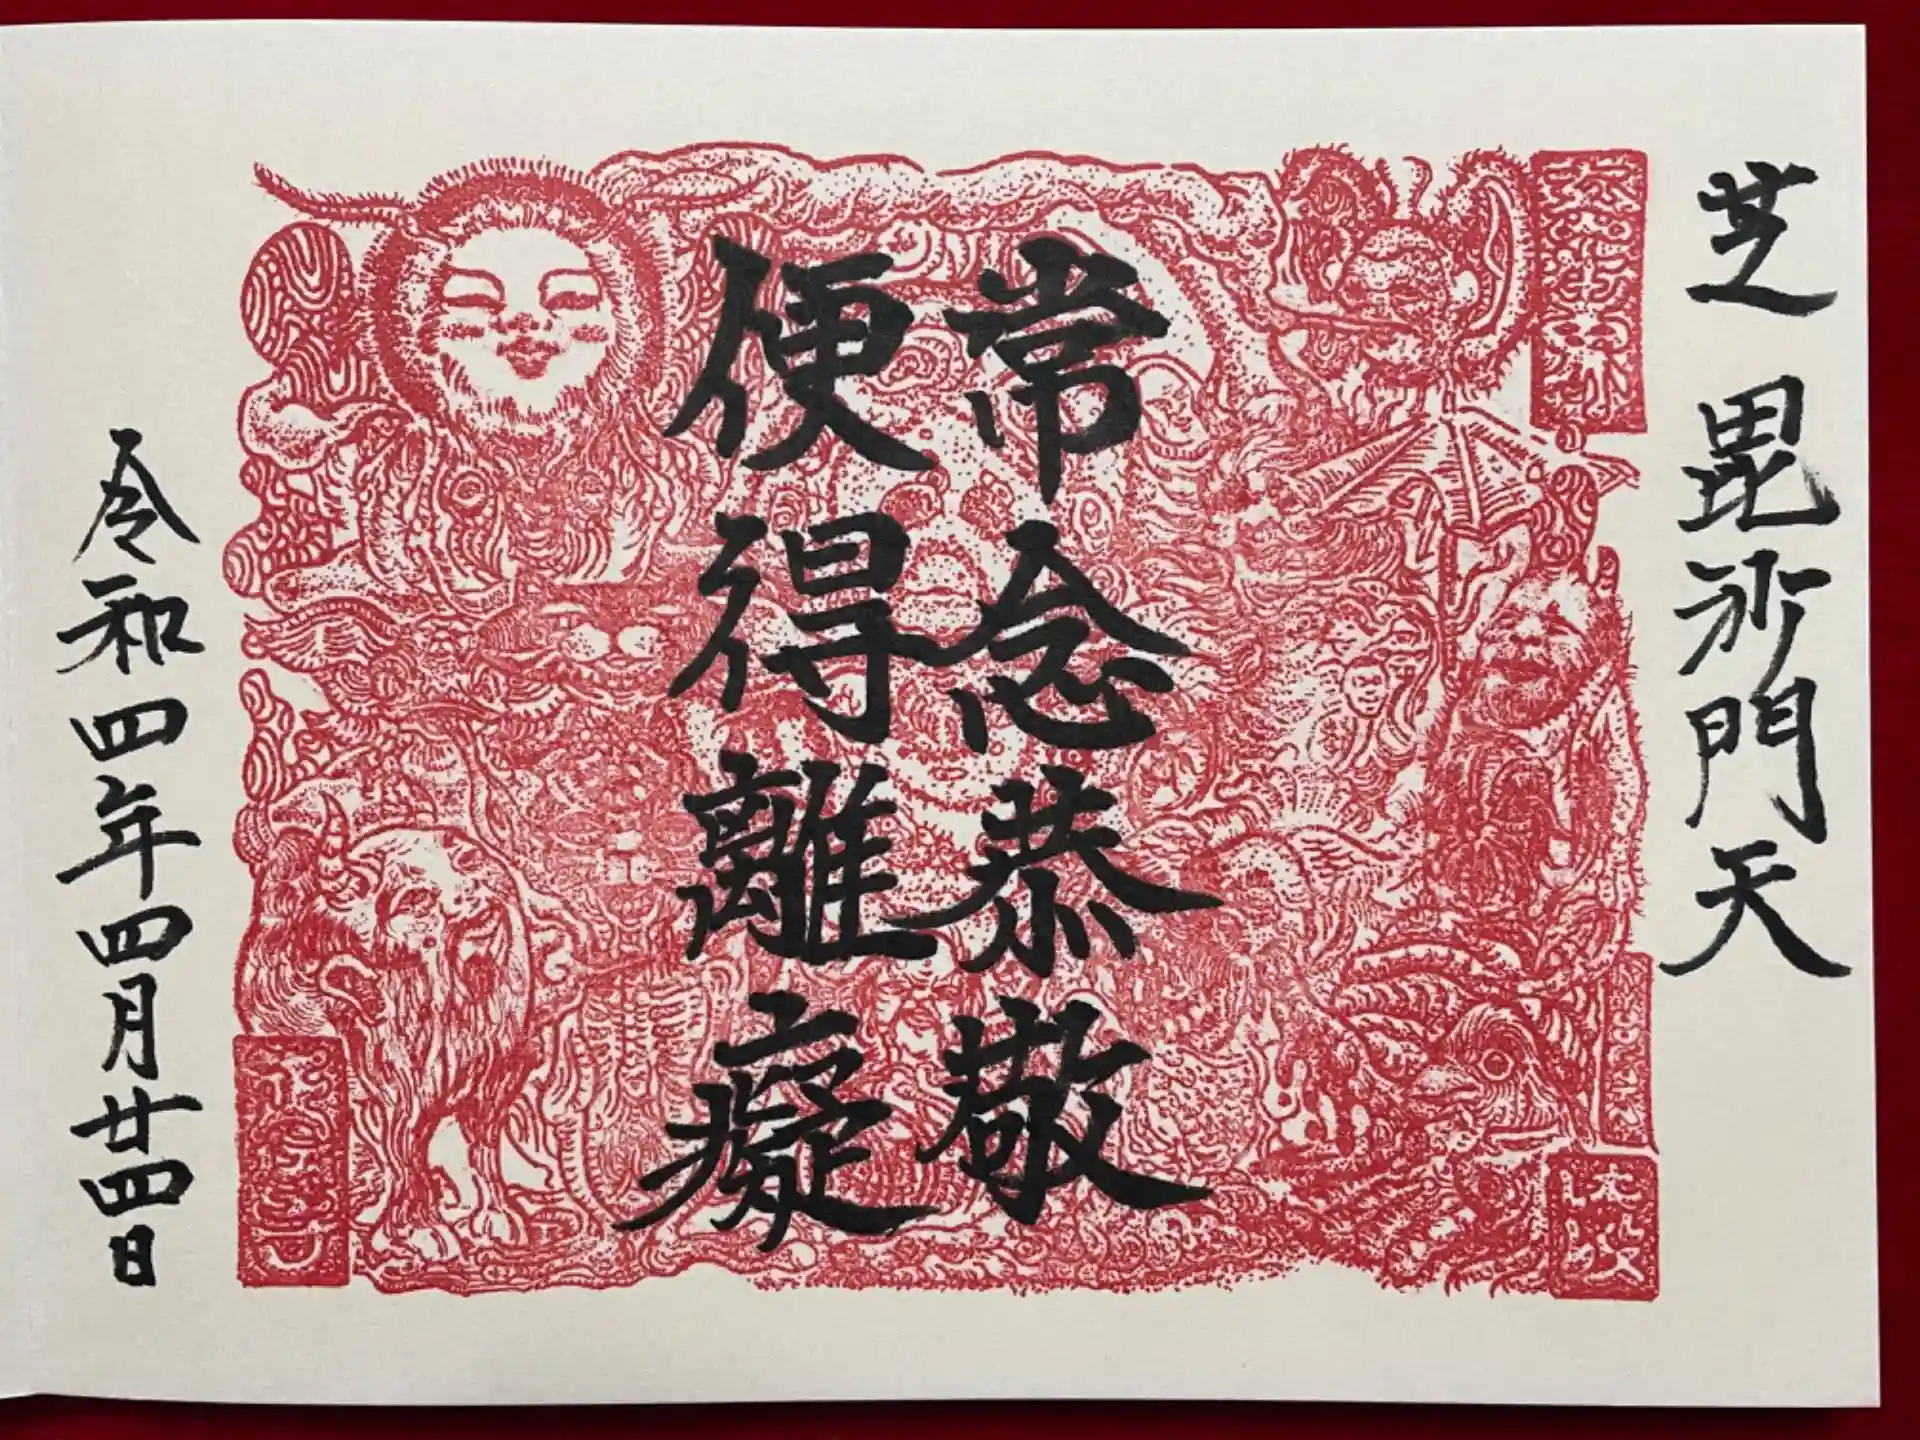 芝 毘沙門天
常念恭敬
便得離癡
令和四年四月廿四日